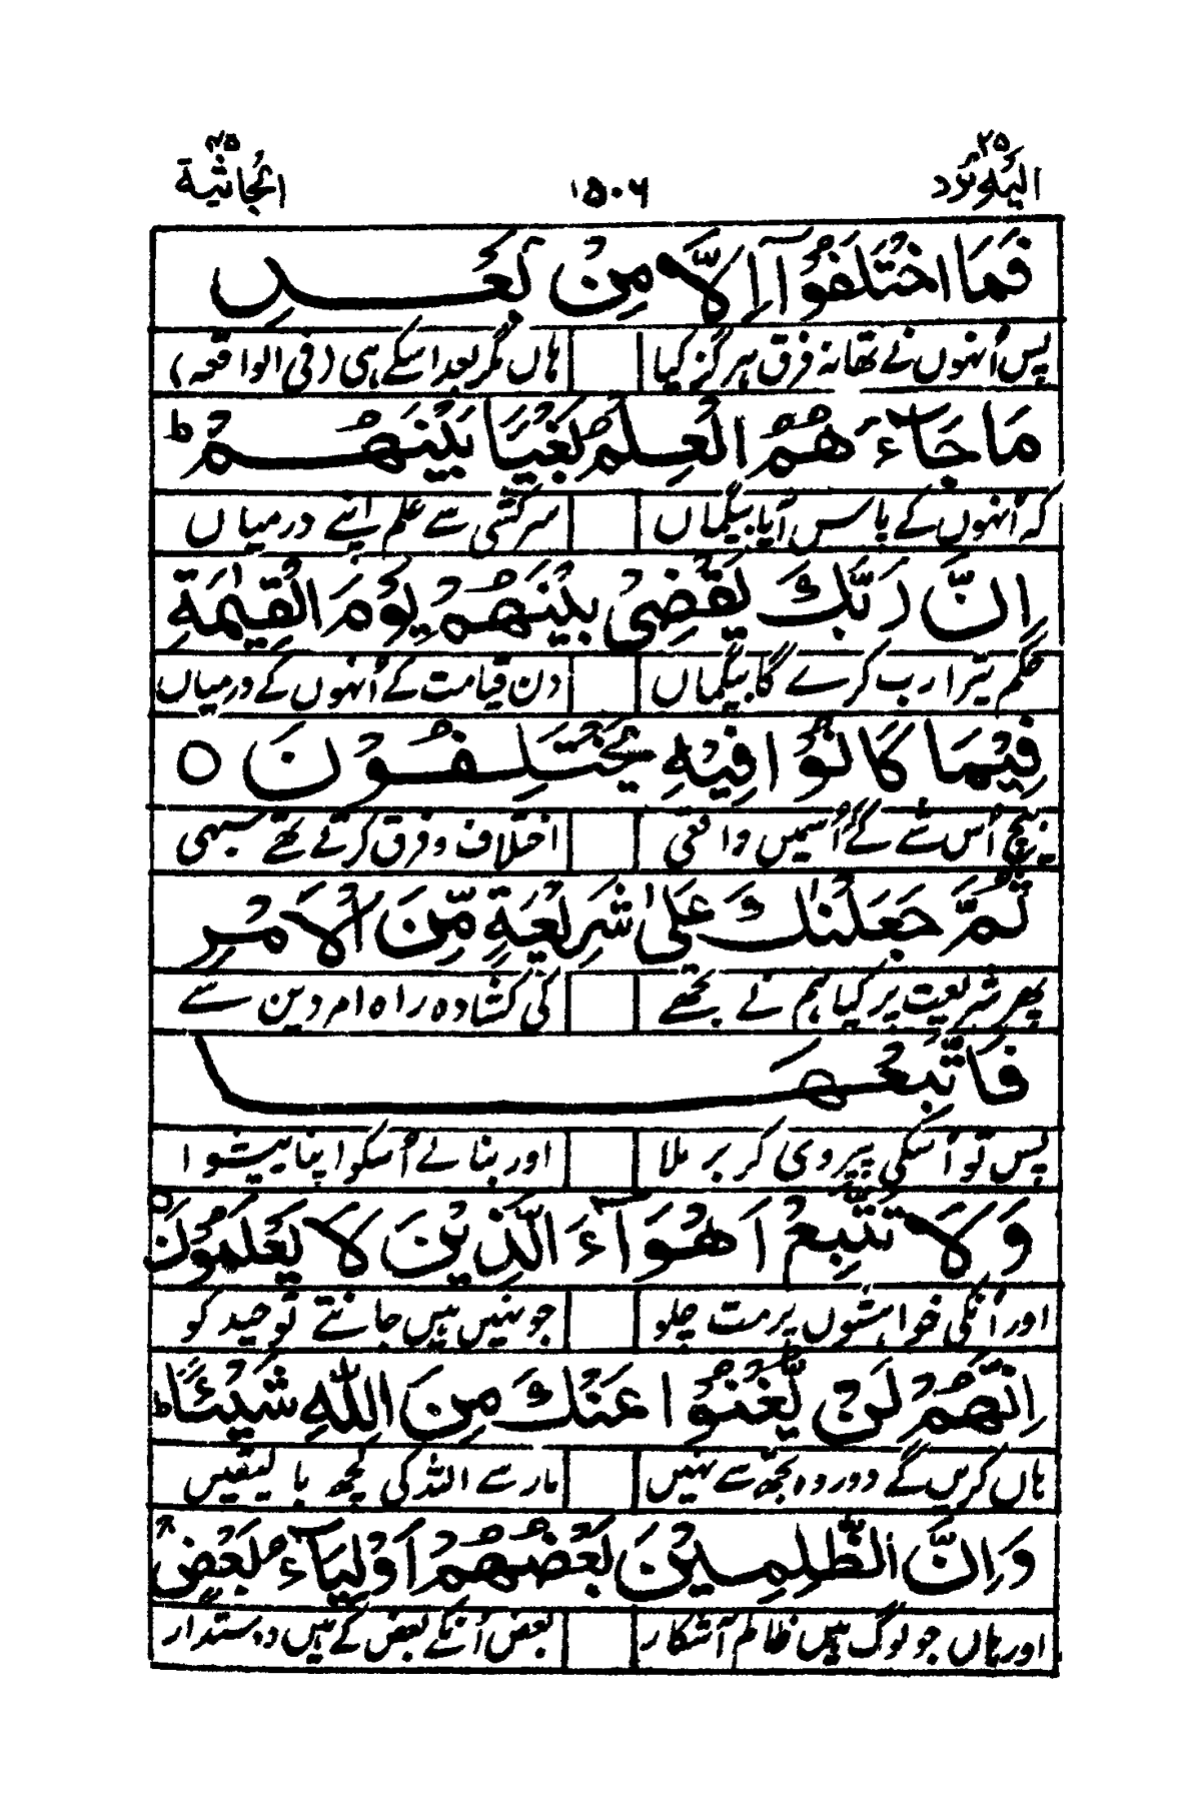 ٢٥ ٤٥
الیه یرد ١٥٠٦ الجاثیة
فَمَا اخْتَلَفُوْٓا اِلَّا مِنْۢ بَعْدِ
پس اُنہوں نے تھانہ فرق ہرگز کیا ہاں مگر بعد اسکے ہی (فی الواقعہ)
مَا جَآءَ هُمُ الْعِلْمُ بَغْيًۢا بَيْنَهُمْ ؕ
کہ اُنہوں کے پاس آیا بیگماں سرکشی سے علم اپنے درمیاں
اِنَّ رَبَّكَ يَقْضِيْ بَيْنَهُمْ يَوْمَ الْقِيٰمَةِ
حکم تیرا رب کرے گا بیگماں دن قیامت کے اُنہوں کے درمیاں
فِيْمَا كَانُوْا فِيْهِ يَخْتَلِفُوْنَ ○
بیچ اُس شے کے اُسمیں واقعی اختلاف و فرق کرتے تھے سبھی
ثُمَّ جَعَلْنٰكَ عَلٰى شَرِيْعَةٍ مِّنَ الْاَمْرِ
پھر شریعت پر کیا ہم نے تجھے کی کشادہ راہ امر دین سے
فَاتَّبِعْهَا
پس تو اُسکی پیروی کر برملا اور بنالے اُسکو اپنا پیشوا
وَلَا تَتَّبِعْ اَهْوَآءَ الَّذِيْنَ لَا يَعْلَمُوْنَ ○
اور اُنکی خواہشوں پر مت چلو جو نہیں ہیں جانتے توحید کو
اِنَّهُمْ لَنْ يُّغْنُوْا عَنْكَ مِنَ اللّٰهِ شَيْئًا ؕ
ہاں کریں گے دور وہ تجھ سے نہیں مار سے اللہ کی کچھ بالیقیں
وَاِنَّ الظّٰلِمِيْنَ بَعْضُهُمْ اَوْلِيَآءُ بَعْضٍ ۚ
اور ہاں جو لوگ ہیں ظالم آشکار بعض اُنکے بعض کے ہیں دوستدار